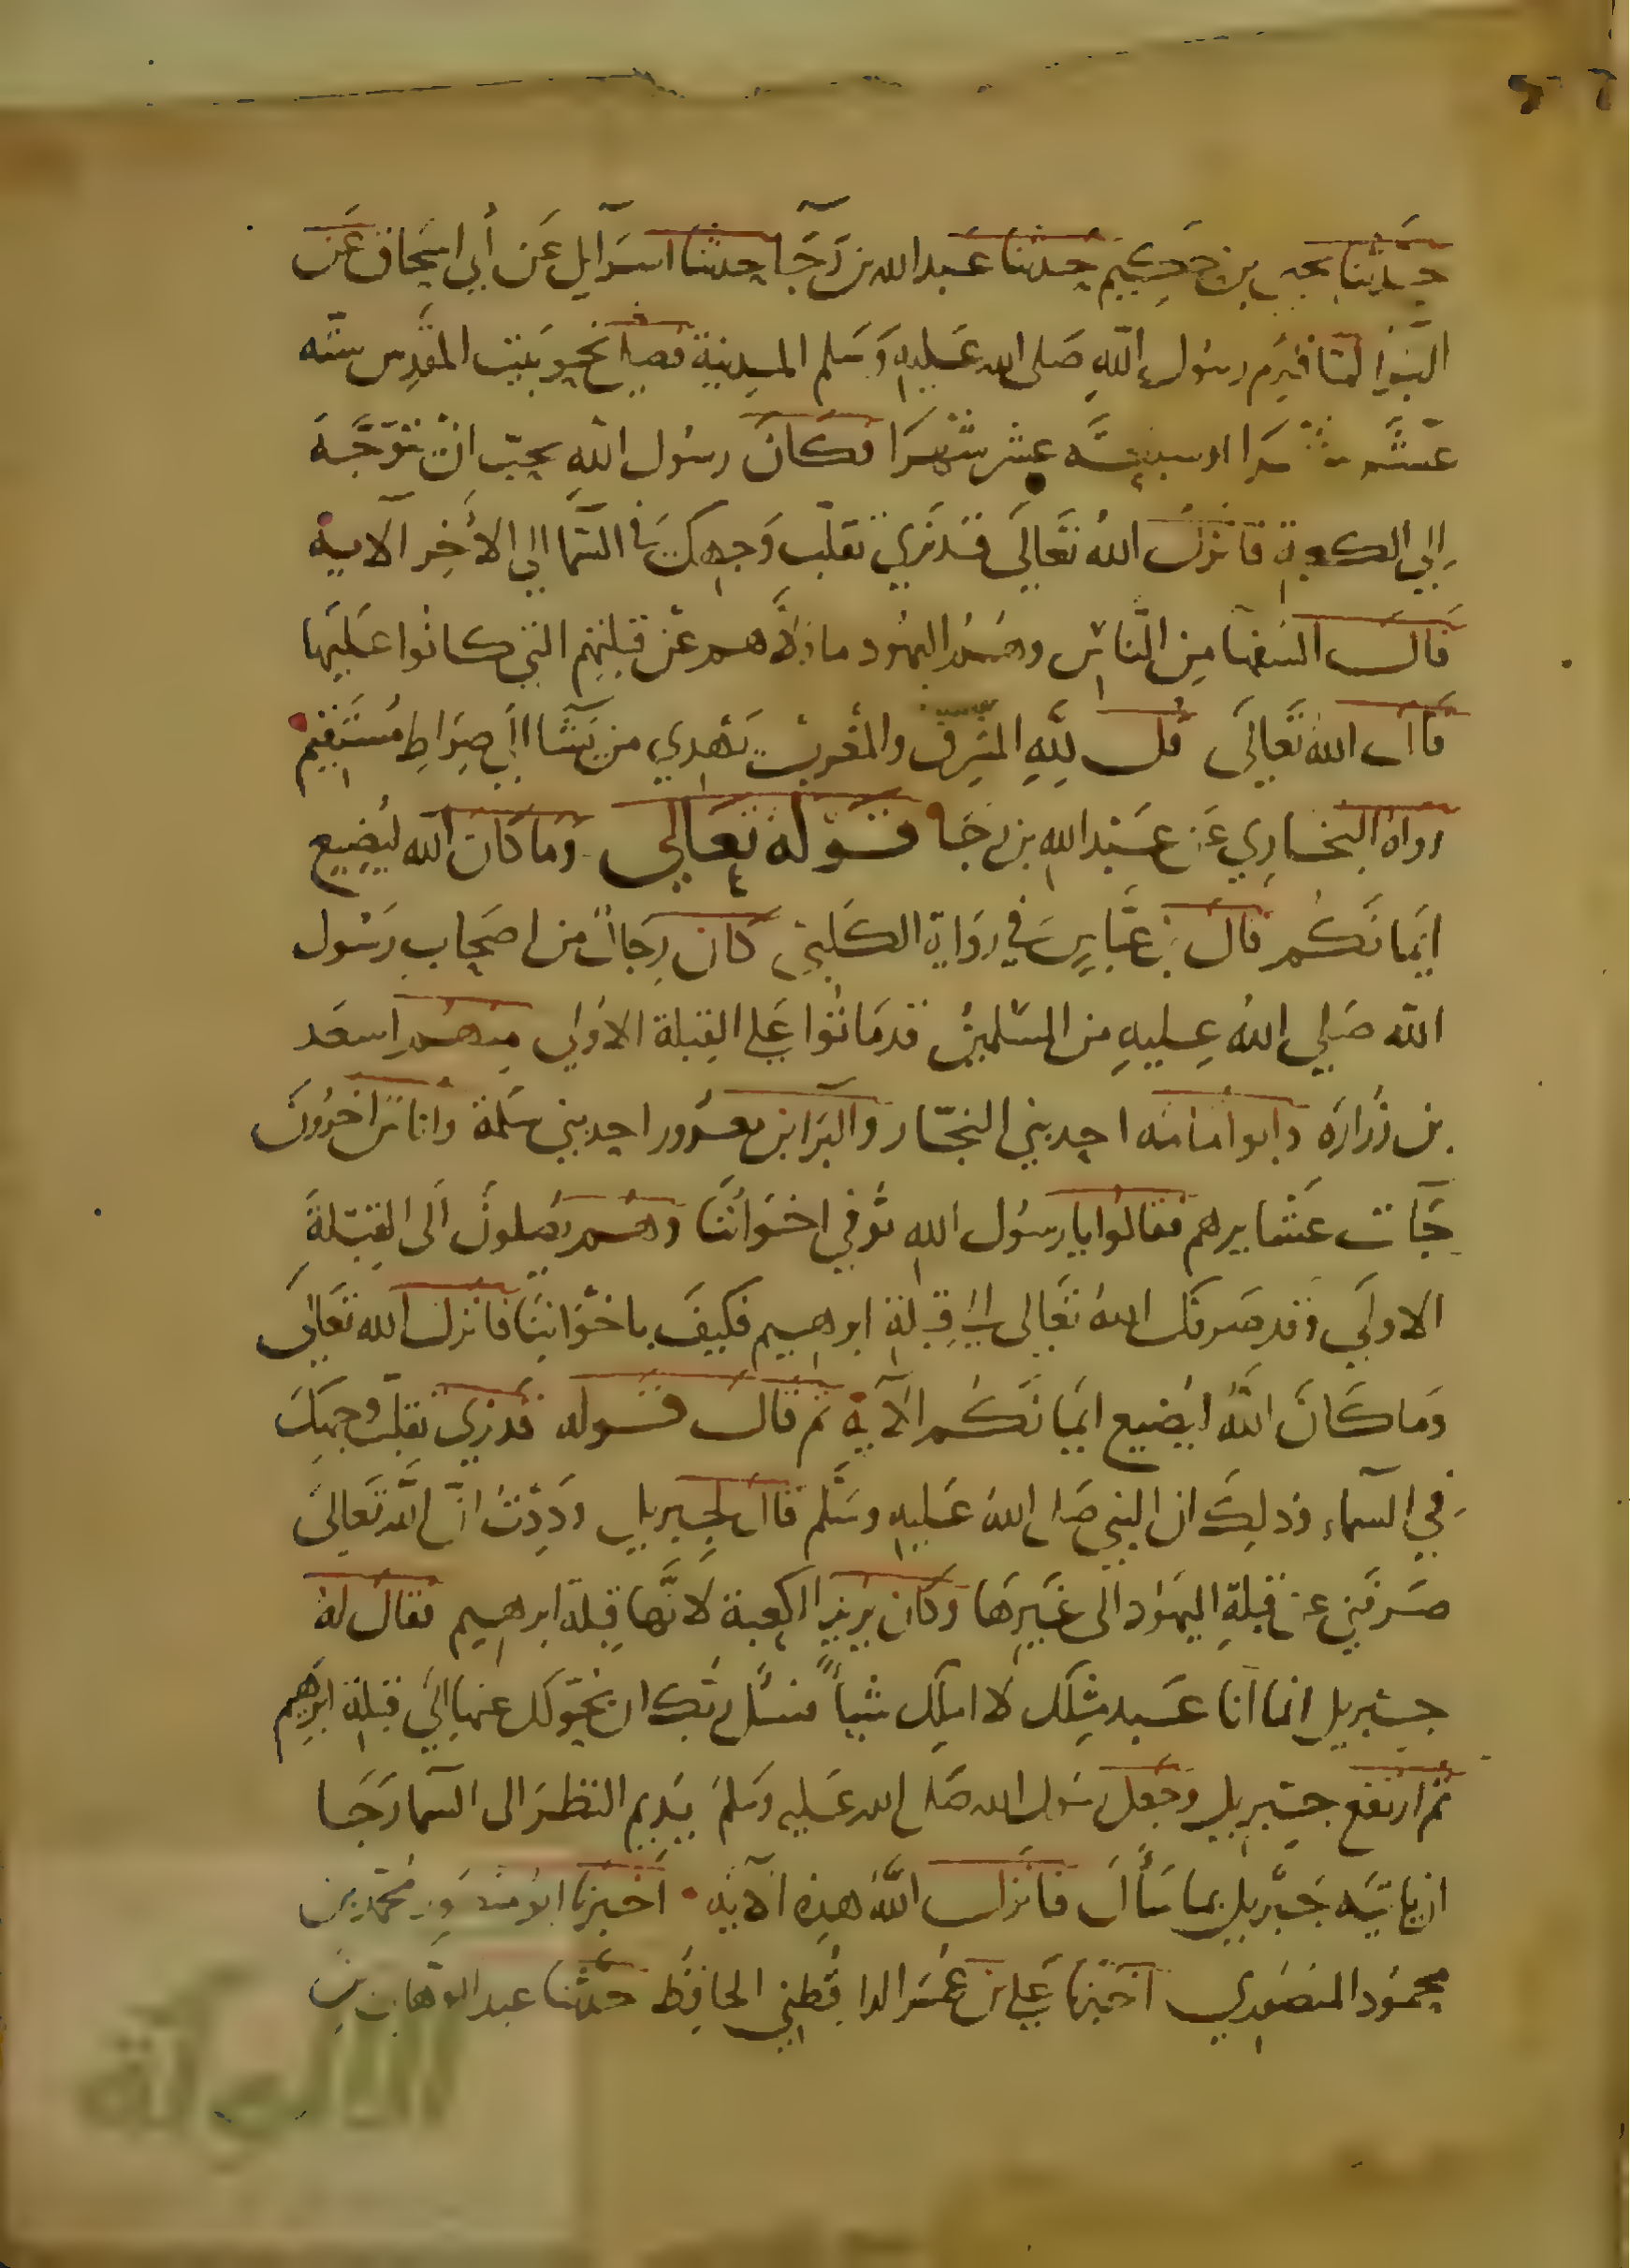 حدثنا يحيى بن حكيم حدثنا عبد الله بن رجا حدثنا اسرايل عن أبي اسحاق عن
البرا لما قدم رسول الله صلى الله عليه وسلم المدينة فصلى نحو بيت المقدس سته
عشر شهرا او سبعة عشر شهرا فكان رسول الله يحب ان يتوجه
إلى الكعبة فانزل الله تعالى قد نري تقلب وجهك في السما الي الأخر الآية
قال السفها من الناس وهم اليهود ما ولاهم عن قبلتهم التي كانوا عليها
قال الله تعالى قل لله المشرق والمغرب يهدي من يشا الى صراط مستقيم
رواه البخاري عن عبد الله بن رجا قوله تعالى وما كان الله ليضيع
ايمانكم قال بن عباس في رواية الكلبي كان رجال من اصحاب رسول
الله صلي الله عليه من المسلمين قد ماتوا على القبلة الاولى منهم اسعد
بن زرارة وابو امامه احد بني النجار والبرا بن معرور احد بني سلمة وأناس اخرون
جآت عشايرهم فقالوا يا رسول الله توفي اخواننا وهم يصلون الى القبلة
الاولى وقد صرفك الله تعالى الى قبلة ابرهيم فكيف باخواننا فانزل الله تعالى
وما كان الله ليضيع ايمانكم الآية ثم قال قوله قد نري تقلب وجهك
في السماء وذلك ان النبي صلى الله عليه وسلم قال لجبريل وددت ان الله تعالى
صرفني عن قبلة اليهود الى غيرها وكان يريد الكعبة لانها قبلة ابرهيم فقال له
جبريل انما انا عبد مثلك لا املك شيأ فسل ربك ان يحولك عنها الى قبلة ابرهيم
ثم ارتفع جبريل وجعل رسول الله صلى الله عليه وسلم يديم النظر الى السما رجا
ان ياتيه جبريل بما سأل فانزل الله هذه الآية اخبرنا ابو منصور محمد بن
محمود المنصوري اخبرنا علي بن عمر الدارقطني الحافظ حدثنا عبد الوهاب بن
الألوكة